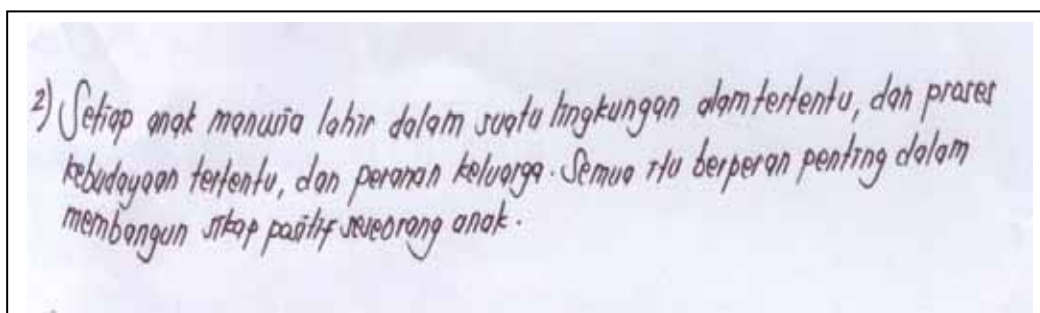 2) Setiap anak manusia lahir dalam suatu lingkungan alam tertentu, dan proses
kebudayaan tertentu, dan peranan keluarga. Semua itu berperan penting dalam
membangun sikap positif seseorang anak.